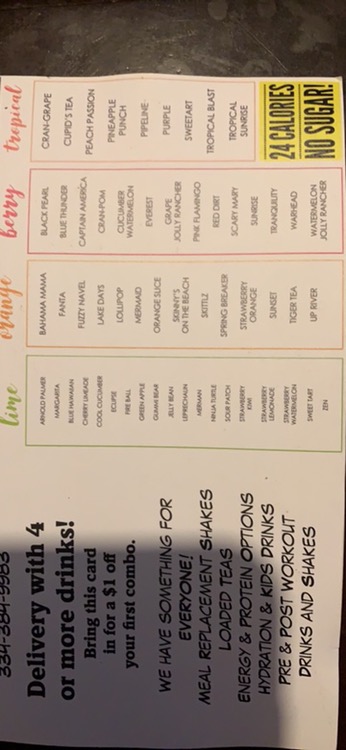 334-384-9983
Delivery with 4
or more drinks!
Bring this card
in for a $1 off
your first combo.
WE HAVE SOMETHING FOR
EVERYONE!
MEAL REPLACEMENT SHAKES
LOADED TEAS
ENERGY & PROTEIN OPTIONS
HYDRATION & KIDS DRINKS
PRE & POST WORKOUT
DRINKS AND SHAKES
lime
ARNOLD PALMER
MARGARITA
BLUE HAWAIIAN
CHERRY LIMEADE
COOL CUCUMBER
ECLIPSE
FIRE BALL
GREEN APPLE
GUMMI BEAR
JELLY BEAN
LEPRECHAUN
MERMAN
NINJA TURTLE
SOUR PATCH
STRAWBERRY
KIWI
STRAWBERRY
LEMONADE
STRAWBERRY
WATERMELON
SWEET TART
ZEN
orange
BAHAMA MAMA
FANTA
FUZZY NAVEL
LAKE DAYS
LOLLIPOP
MERMAID
ORANGE SLICE
SKINNY'S
ON THE BEACH
SKITTLZ
SPRING BREAKER
STRAWBERRY
ORANGE
SUNSET
TIGER TEA
UP RIVER
berry
BLACK PEARL
BLUE THUNDER
CAPTAIN AMERICA
CRAN-POM
CUCUMBER
WATERMELON
EVEREST
GRAPE
JOLLY RANCHER
PINK FLAMINGO
RED DIRT
SCARY MARY
SUNRISE
TRANQUILITY
WARHEAD
WATERMELON
JOLLY RANCHER
tropical
CRAN-GRAPE
CUPID'S TEA
PEACH PASSION
PINEAPPLE
PUNCH
PIPELINE
PURPLE
SWEETART
TROPICAL BLAST
TROPICAL
SUNRISE
24 CALORIES
NO SUGAR!